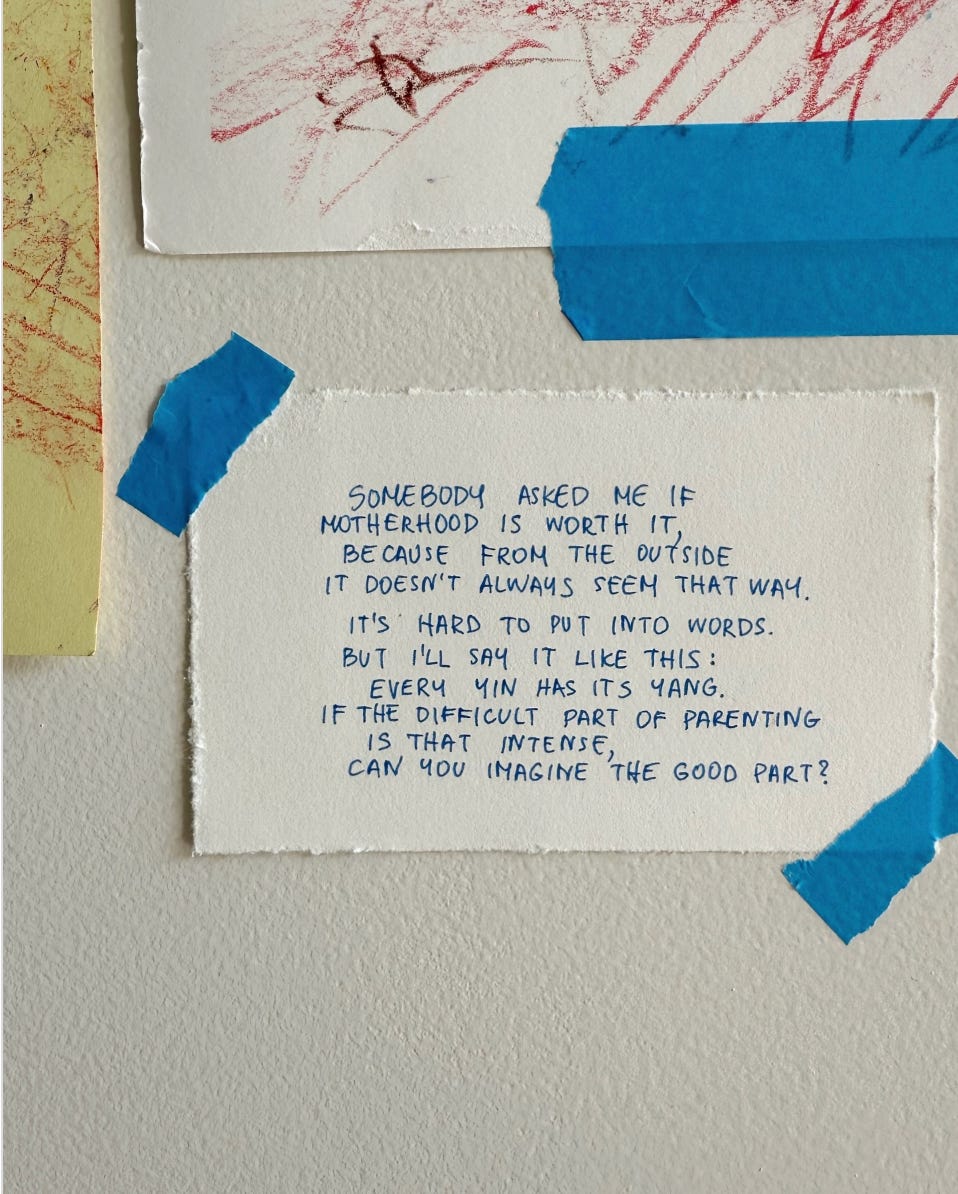 SOMEBODY ASKED ME IF
MOTHERHOOD IS WORTH IT,
BECAUSE FROM THE OUTSIDE
IT DOESN'T ALWAYS SEEM THAT WAY.
IT'S HARD TO PUT INTO WORDS.
BUT I'LL SAY IT LIKE THIS:
EVERY YIN HAS ITS YANG.
IF THE DIFFICULT PART OF PARENTING
IS THAT INTENSE,
CAN YOU IMAGINE THE GOOD PART?